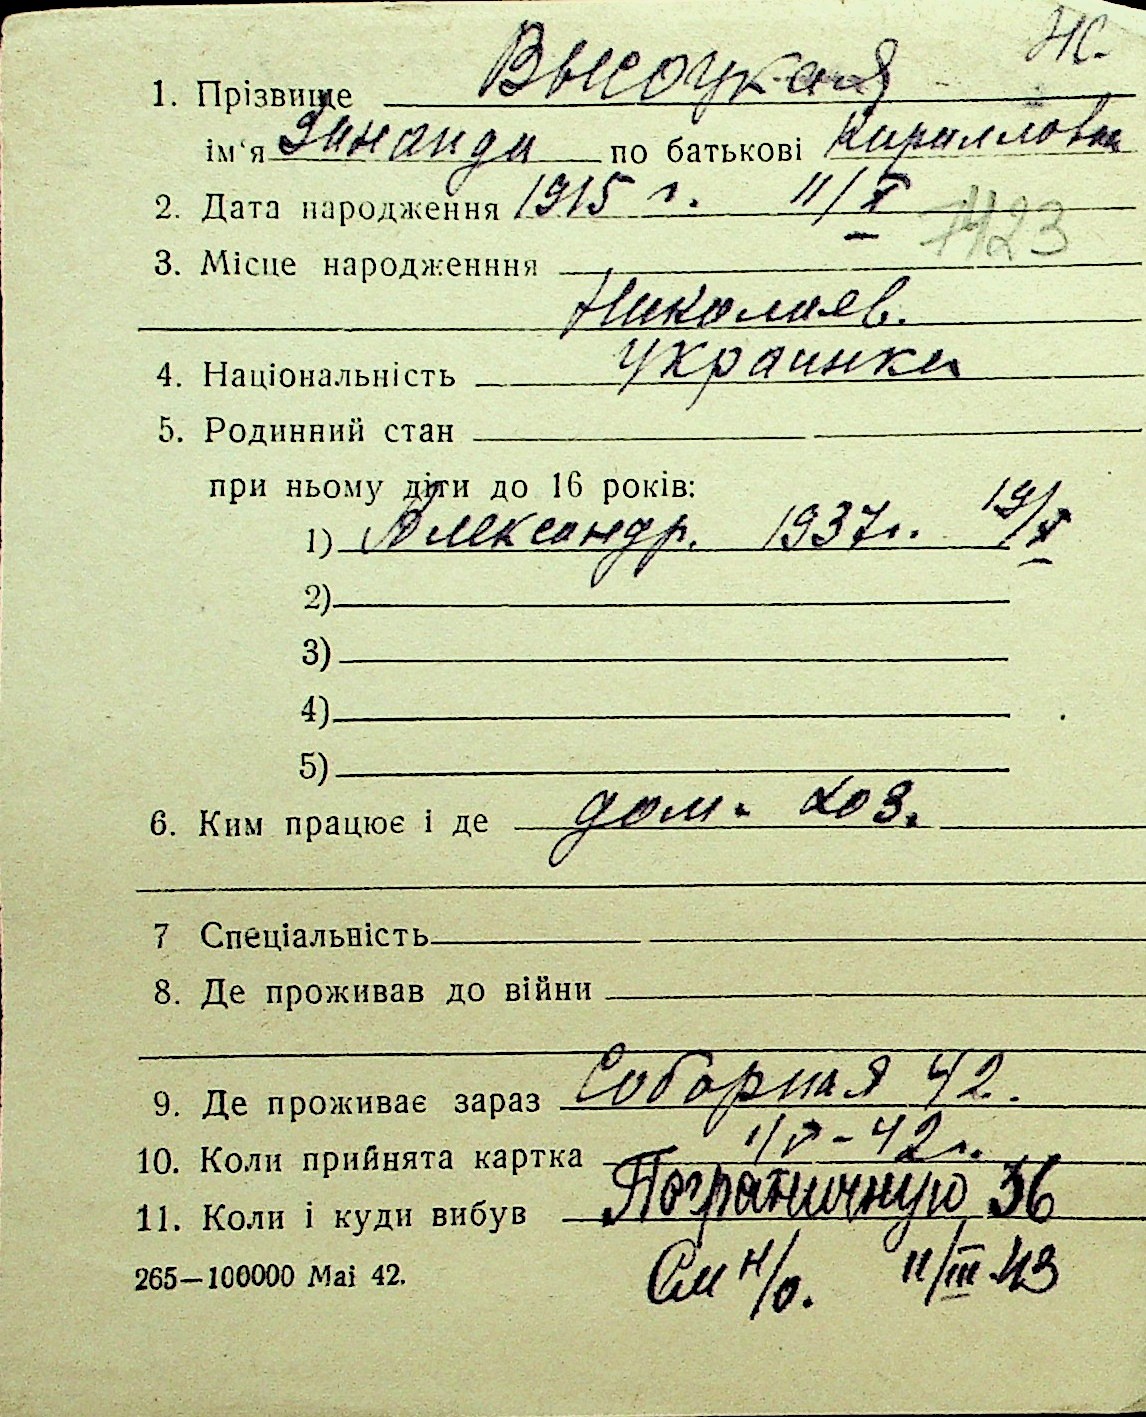 Ж.
1. Прізвище Высоцкая
ім'я Зинаида по батькові Кирилловна
2. Дата народження 1915 г. 11/X
7423
3. Місце народженння
Николаев.
4. Національність Украинка
5. Родинний стан
при ньому діти до 16 років:
1) Александр. 1937г. 19/X
2)
3)
4)
5)
6. Ким працює і де дом. хоз.
7 Спеціальність
8. Де проживав до війни
9. Де проживає зараз Соборная 42.
10. Коли прийнята картка -42г.
11. Коли і куди вибув Пограничную 36
265—100000 Mai 42. См н/о. 11/III 43